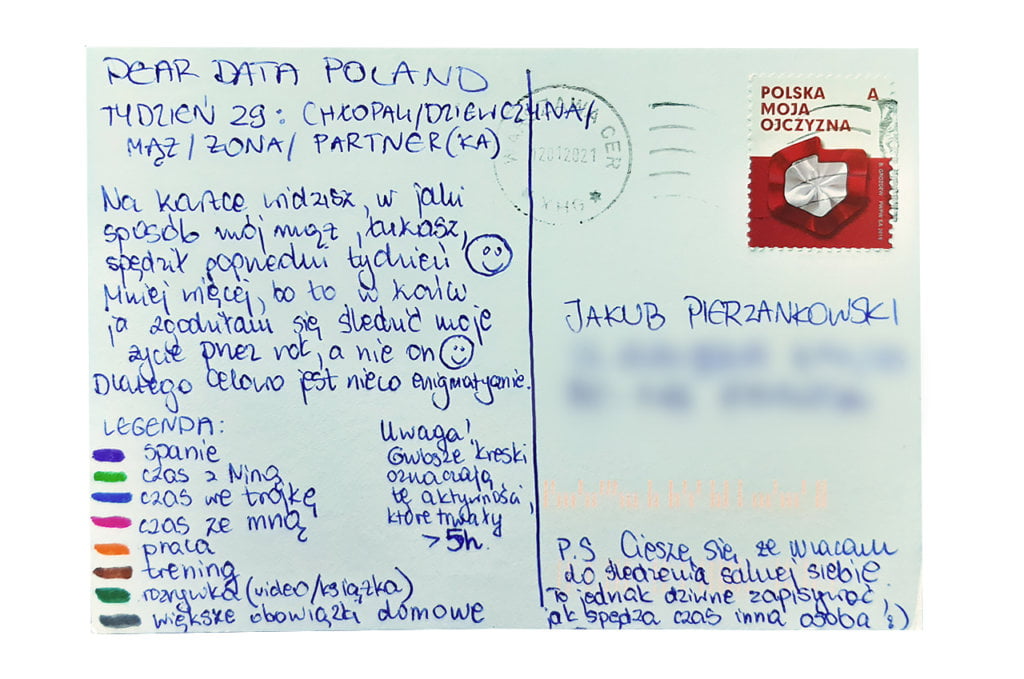 DEAR DATA POLAND
TYDZIEŃ 29: CHŁOPAK/DZIEWCZYNA/
MĄŻ/ŻONA/ PARTNER(KA)
Na kartce widzisz, w jaki
sposób mój mąż, Łukasz,
spędził poprzedni tydzień
Mniej więcej, bo to w końcu
ja zgodziłam się śledzić moje
życie przez rok, a nie on
Dlatego celowo jest nieco enigmatycznie.
LEGENDA:
spanie
czas z Niną
czas we trójkę
czas ze mną
praca
trening
rozrywka (video/książka)
większe obowiązki domowe
Uwaga!
Grubsze kreski
oznaczają
te aktywności,
które trwały
>5h.
CER
12012021
POLSKA A
MOJA
OJCZYZNA
JAKUB PIERZANKOWSKI
P.S. Cieszę się, że wracam
do śledzenia samej siebie.
To jednak dziwne zapisywać,
jak spędza czas inna osoba :)